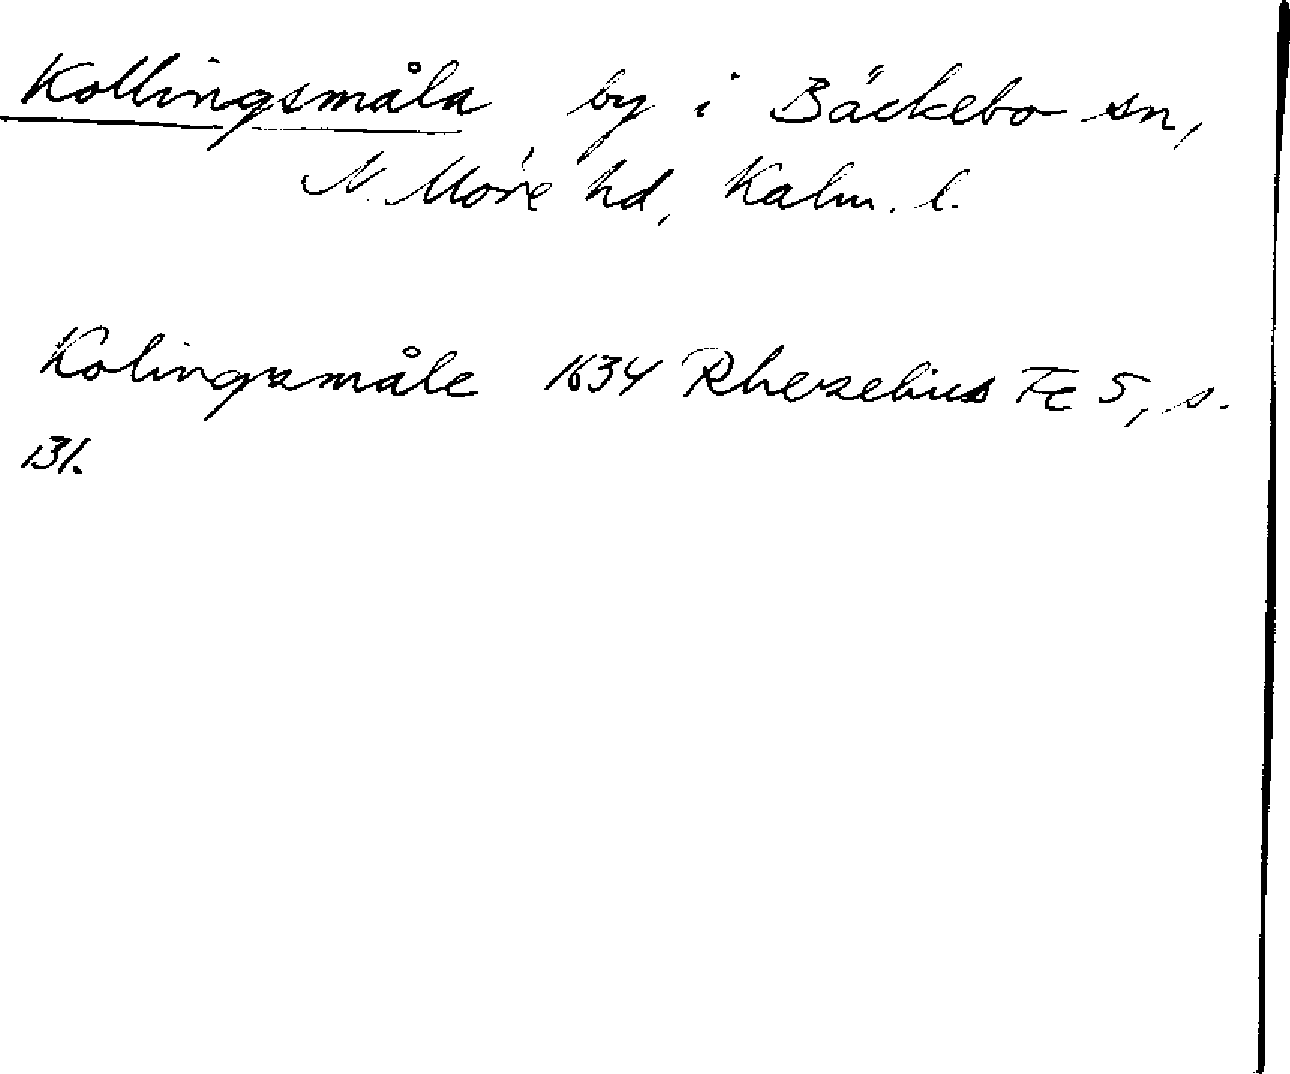 Kollingsmåla by i Bäckebo sn,
N. Möre hd, Kalm. l.
Kolingsmåle 1634 Rhezelius Fc 5, s.
131.